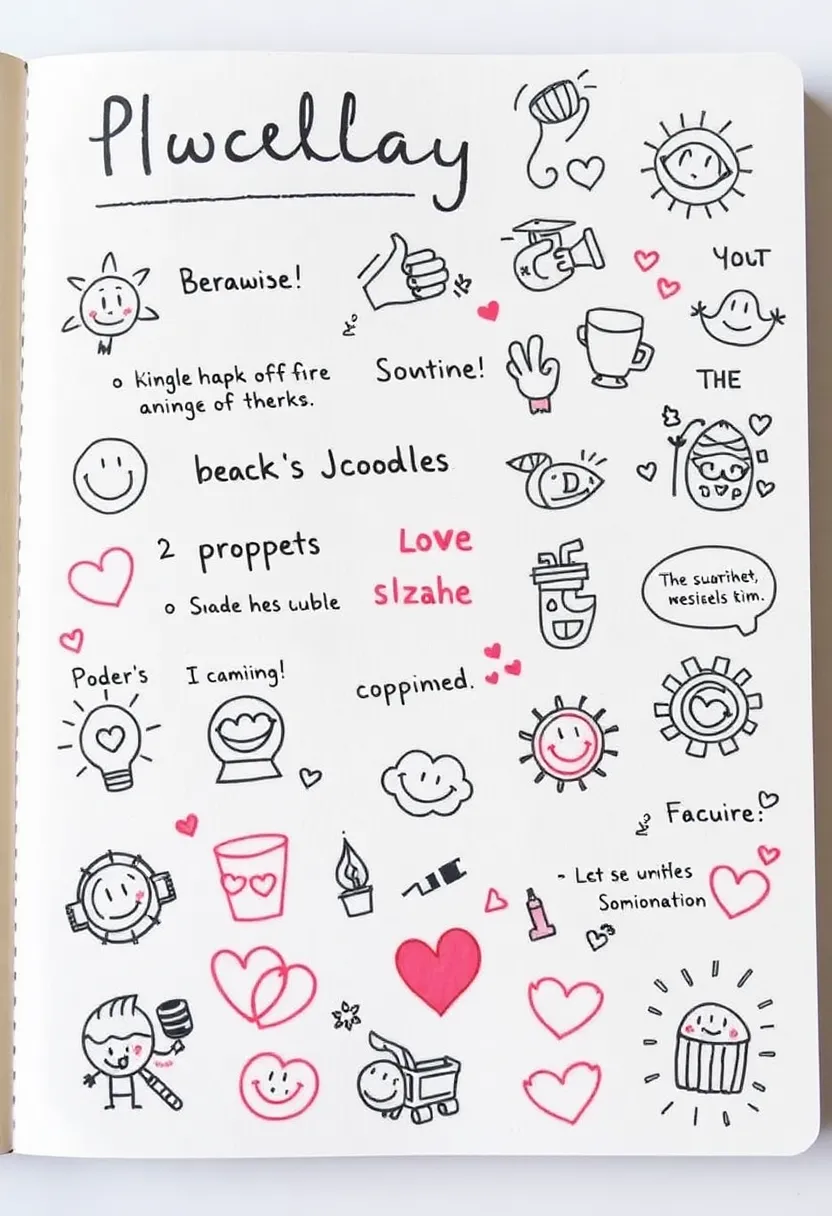 Plwcellay
YOLT
Berawise!
THE
Kingle hapk off fire
aninge of therks.
Soutine!
beack's Jcoodles
D
2 proppets
Love
The suarihet,
wesisels tim.
Siade hes uuble
slzahe
Poder's
I camiing!
coppimed.
Facuire:
- Let se unitles
Somionation